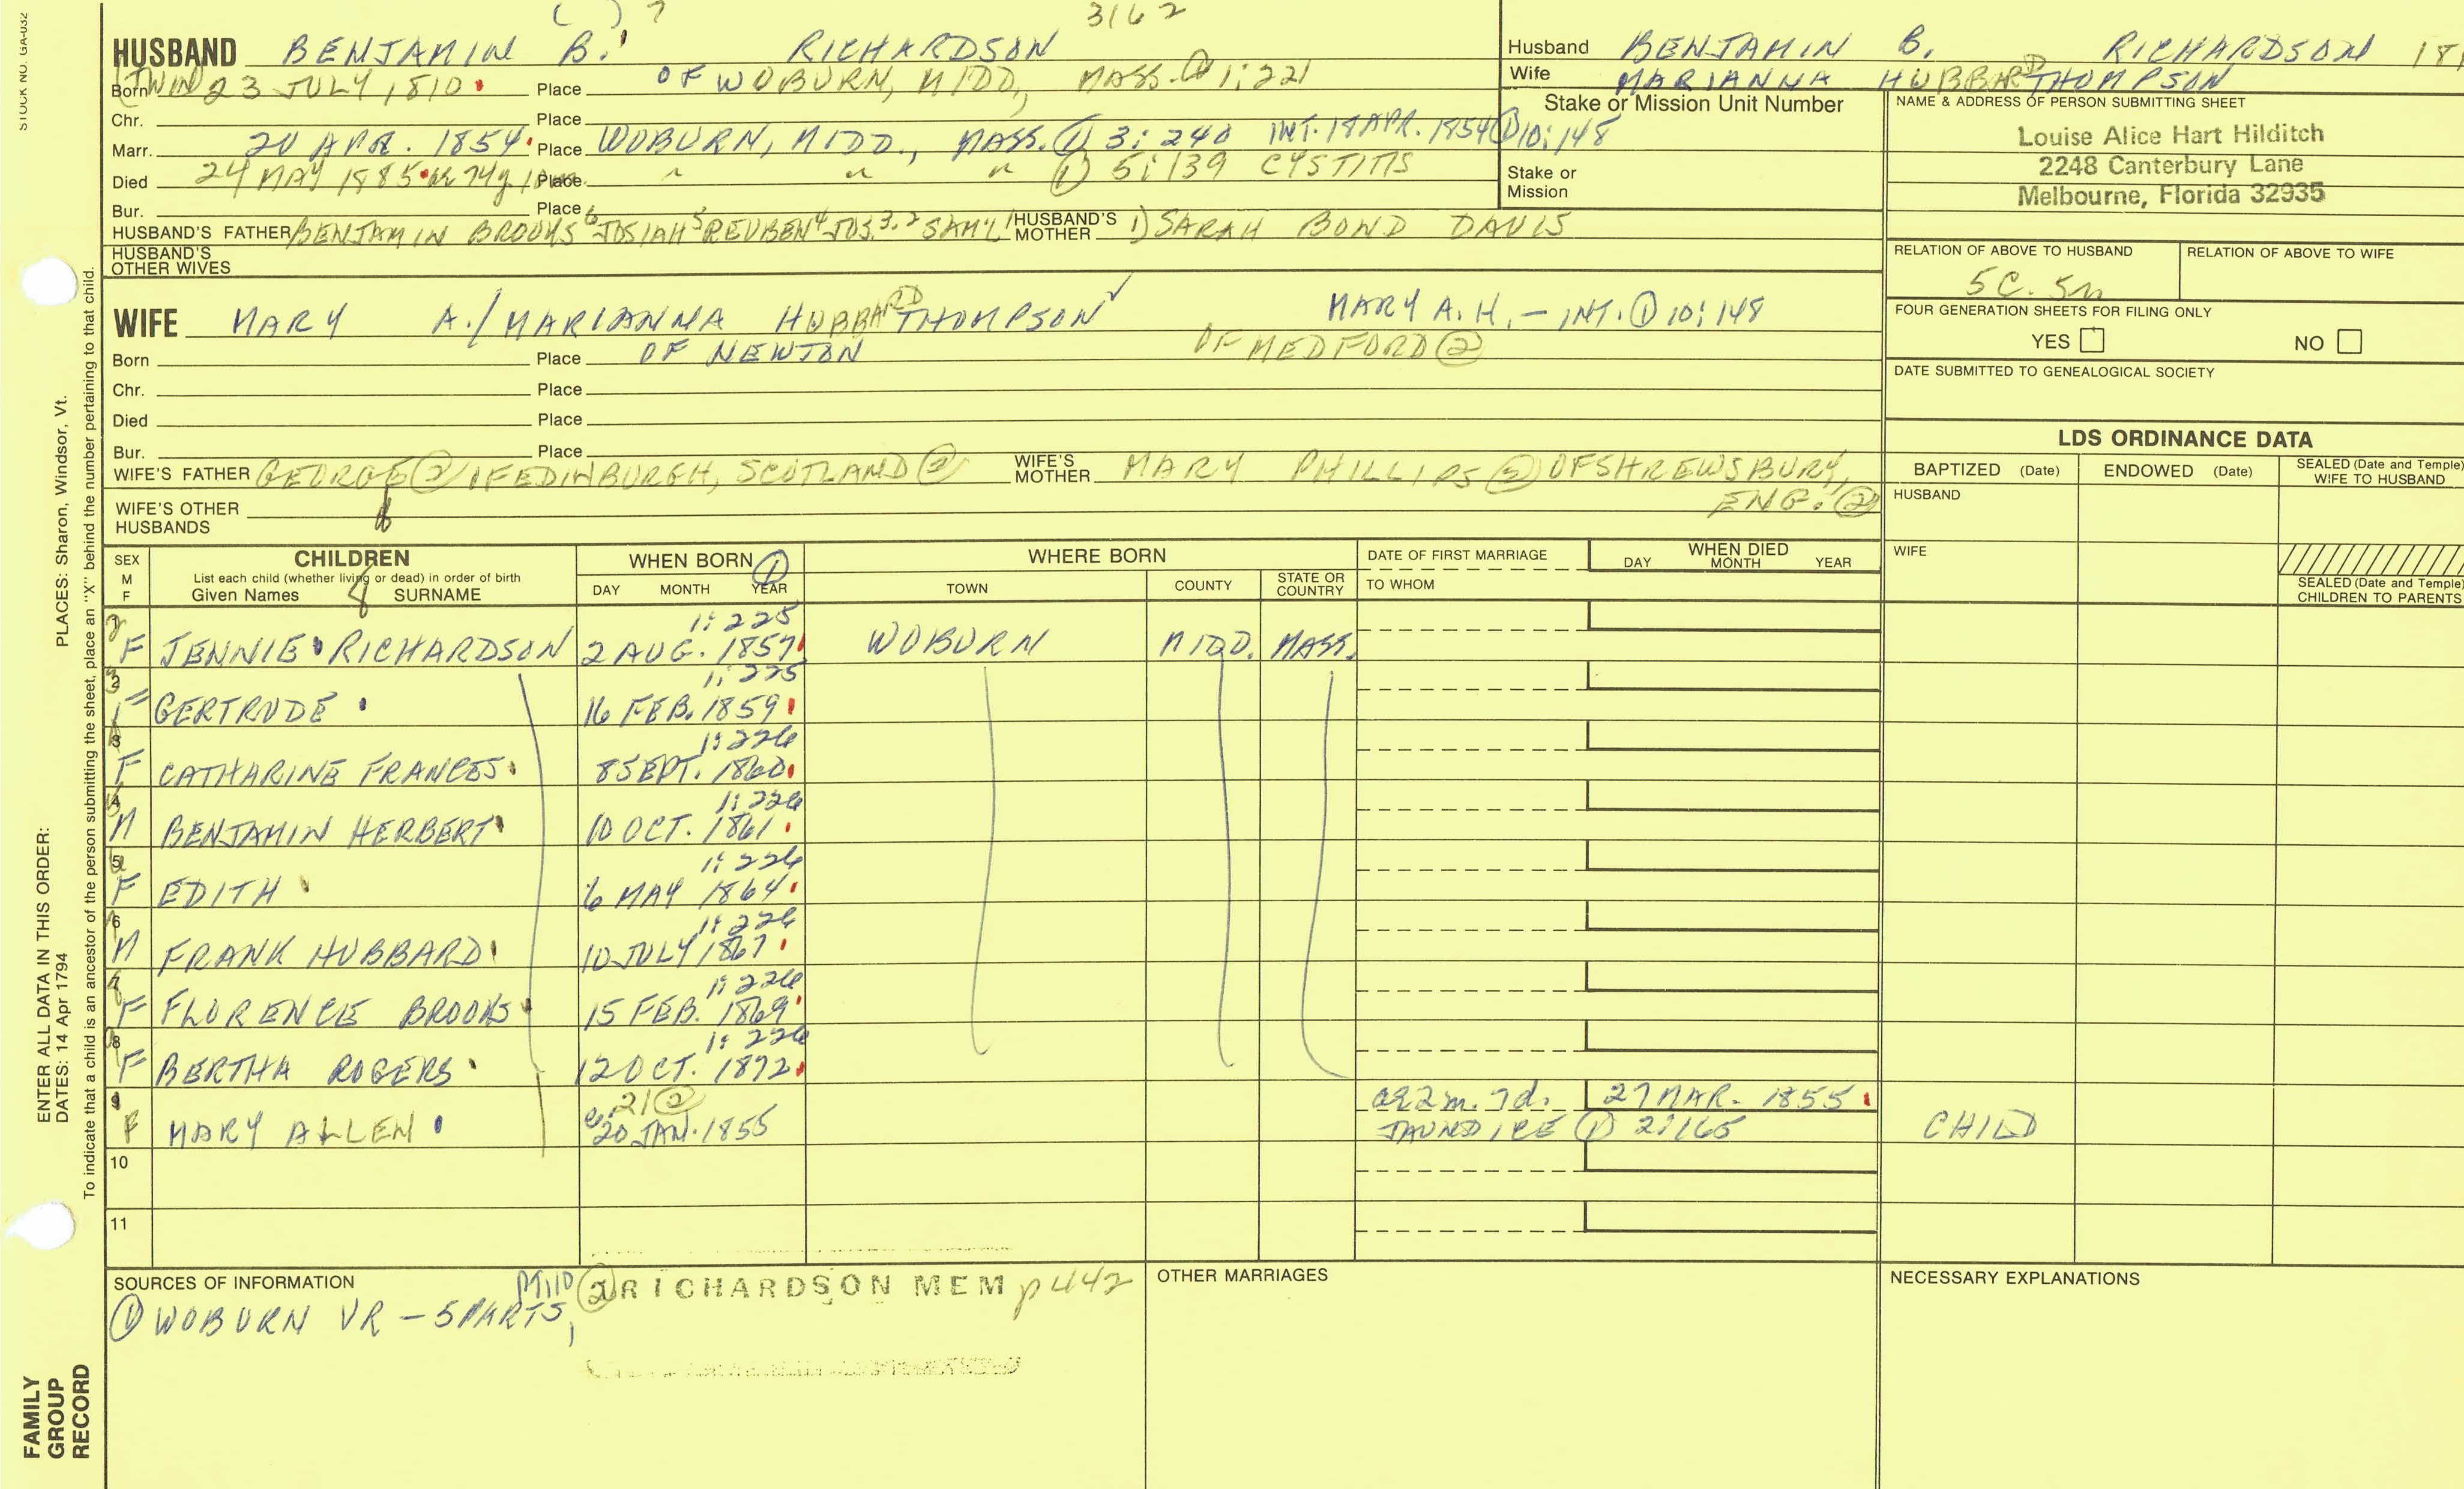 STOCK NO. GA-032
( ) ? 3162
HUSBAND BENJAMIN B. RICHARDSON
Born (TWIN) 23 JULY 1810 Place OF WOBURN, MIDD., MASS. ① 1:221
Chr. Place
Marr. 20 APR. 1854 Place WOBURN, MIDD., MASS. ① 3:240 INT. 18 APR. 1854 ① 10:148
Died 24 MAY 1885 Place " " " ① 5:139 CYSTITIS
Bur. Place
HUSBAND'S FATHER BENJAMIN BROOKS 6 JOSIAH 5 REUBEN 4 JOS. 3,2 SAM'L 1 HUSBAND'S MOTHER 1) SARAH BOND DAVIS
HUSBAND'S OTHER WIVES
WIFE MARY A./MARIANNA HUBBARD THOMPSON ✓ MARY A. H. - INT. ① 10:148
Born Place OF NEWTON OF MEDFORD ②
Chr. Place
Died Place
Bur. Place
WIFE'S FATHER GEORGE ② OF EDINBURGH, SCOTLAND ② WIFE'S MOTHER MARY PHILLIPS ② OF SHREWSBURY, ENG. ②
WIFE'S OTHER HUSBANDS
Husband BENJAMIN B. RICHARDSON 181
Wife MARIANNA HUBBARD THOMPSON
Stake or Mission Unit Number
Stake or Mission
NAME & ADDRESS OF PERSON SUBMITTING SHEET
Louise Alice Hart Hilditch
2248 Canterbury Lane
Melbourne, Florida 32935
RELATION OF ABOVE TO HUSBAND RELATION OF ABOVE TO WIFE
5C. 5R
FOUR GENERATION SHEETS FOR FILING ONLY
YES NO
DATE SUBMITTED TO GENEALOGICAL SOCIETY
LDS ORDINANCE DATA
BAPTIZED (Date) ENDOWED (Date) SEALED (Date and Temple) WIFE TO HUSBAND
HUSBAND
WIFE
SEALED (Date and Temple) CHILDREN TO PARENTS
SEX M F CHILDREN WHEN BORN ① WHERE BORN DATE OF FIRST MARRIAGE WHEN DIED
List each child (whether living or dead) in order of birth
Given Names SURNAME DAY MONTH YEAR TOWN COUNTY STATE OR COUNTRY TO WHOM DAY MONTH YEAR
1:225
F JENNIE RICHARDSON 2 AUG. 1857 WOBURN MIDD. MASS.
2 1:225
F GERTRUDE 16 FEB. 1859
3 1:226
F CATHARINE FRANCES 8 SEPT. 1860
4 1:226
M BENJAMIN HERBERT 10 OCT. 1861
5 1:226
F EDITH 6 MAY 1864
6 1:226
M FRANK HUBBARD 10 JULY 1867
7 1:226
F FLORENCE BROOKS 15 FEB. 1869
8 1:226
F BERTHA ROGERS 12 OCT. 1872
9 21 ② ae 2m. 7d. 27 MAR. 1855
F MARY ALLEN c. 20 JAN. 1855 JAUNDICE ① 2:165 CHILD
10
11
SOURCES OF INFORMATION
① WOBURN VR - 5 PARTS, ② RICHARDSON MEM p 442
OTHER MARRIAGES
NECESSARY EXPLANATIONS
PLACES: Sharon, Windsor, Vt.
ENTER ALL DATA IN THIS ORDER:
DATES: 14 Apr 1794
To indicate that a child is an ancestor of the person submitting the sheet, place an "X" behind the number pertaining to that child.
FAMILY GROUP RECORD